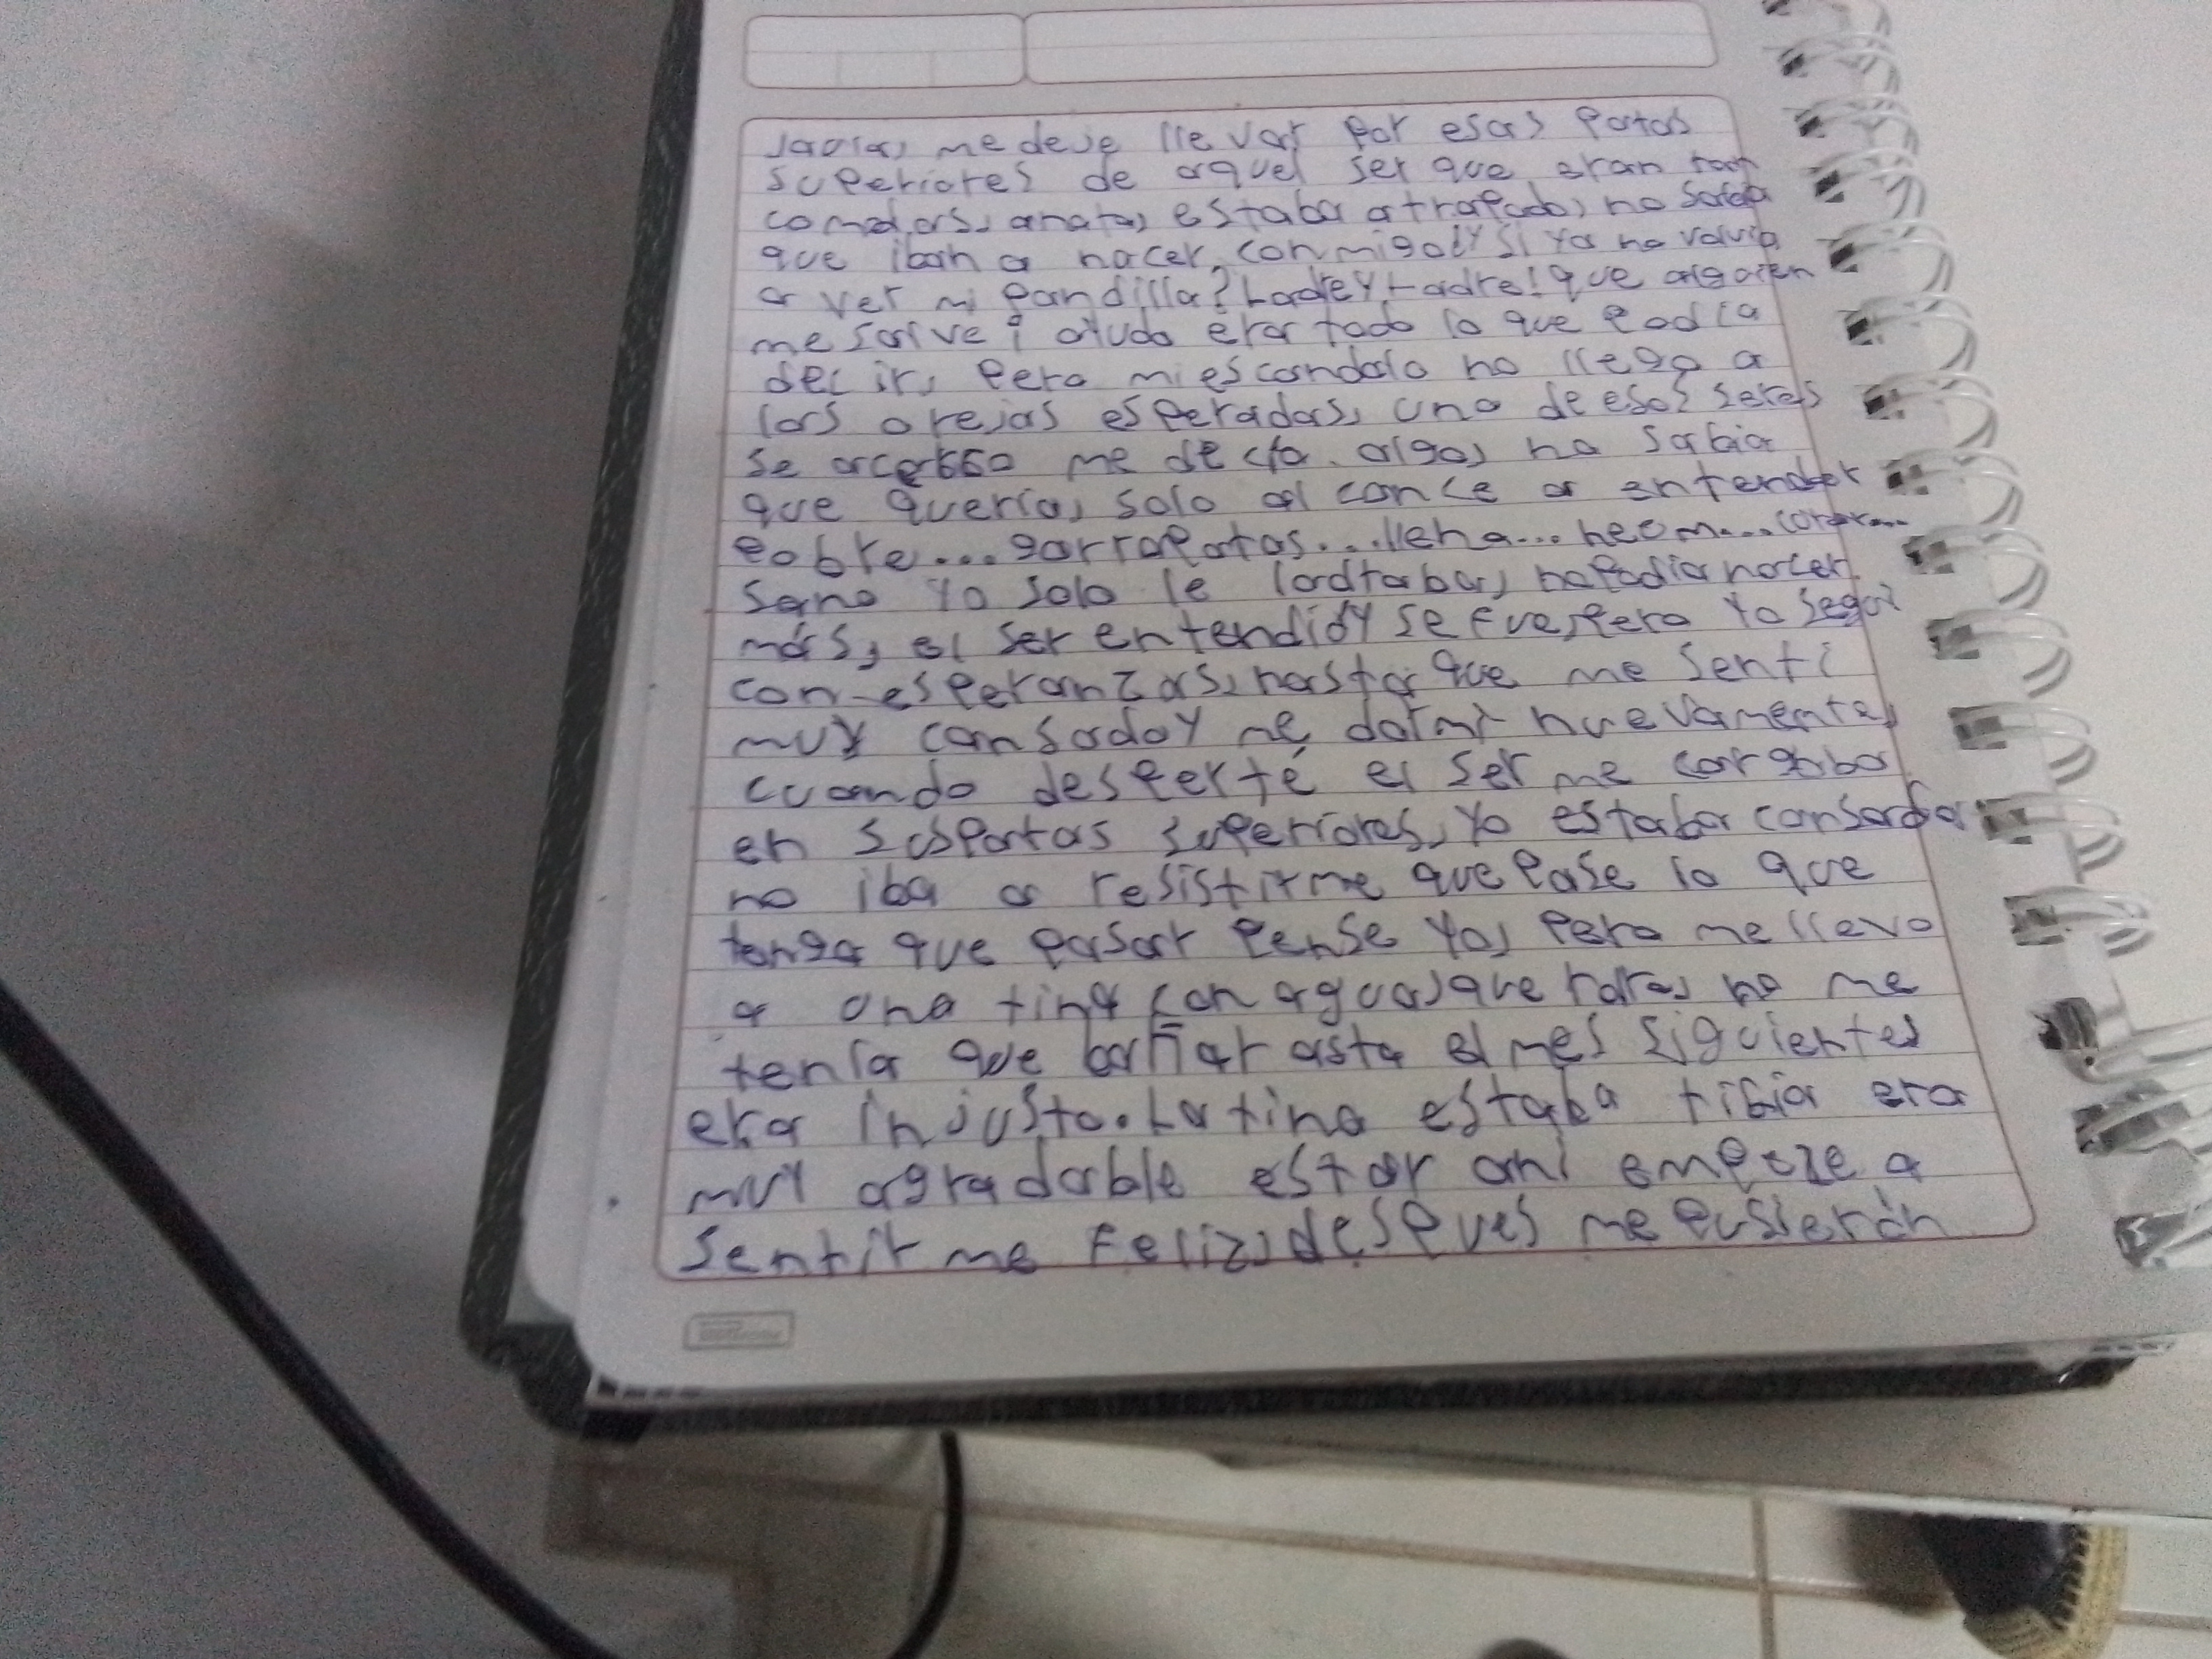 jaula, me deje llevar por esas patas
superiores de aquel ser que eran tan
comodas, anata, estaba atrapado, no sabia
que iban a hacer conmigo ¿Y si ya no volvia
a ver mi pandilla? Ladre y Ladre! que alguien
me salve ¡ ayuda era todo lo que podia
decir, pero mi escandalo no llego a
las orejas esperadas, uno de esos seres
se acerco me decía algo, no sabia
que queria, solo alcance a entender
pobre... garrapatas... llena... neum... corar...
sano Yo solo le ladraba, no podia hacer
más, el ser entendidY se fue, pero Yo segui
con esperanzas, hasta que me senti
muy cansadoY me dormi nuevamente,
cuando desperté el ser me cargaba
en sus patas superiores, Yo estaba cansado
no iba a resistirme que pase lo que
tenga que pasar pense Yo, pero me llevo
a una tina con agua, que raro, no me
tenía que bañar asta el mes siguientes
era injusto. La tina estaba tibia era
muy agradable estar ahí empeze a
sentirme feliz, despues me pusierón